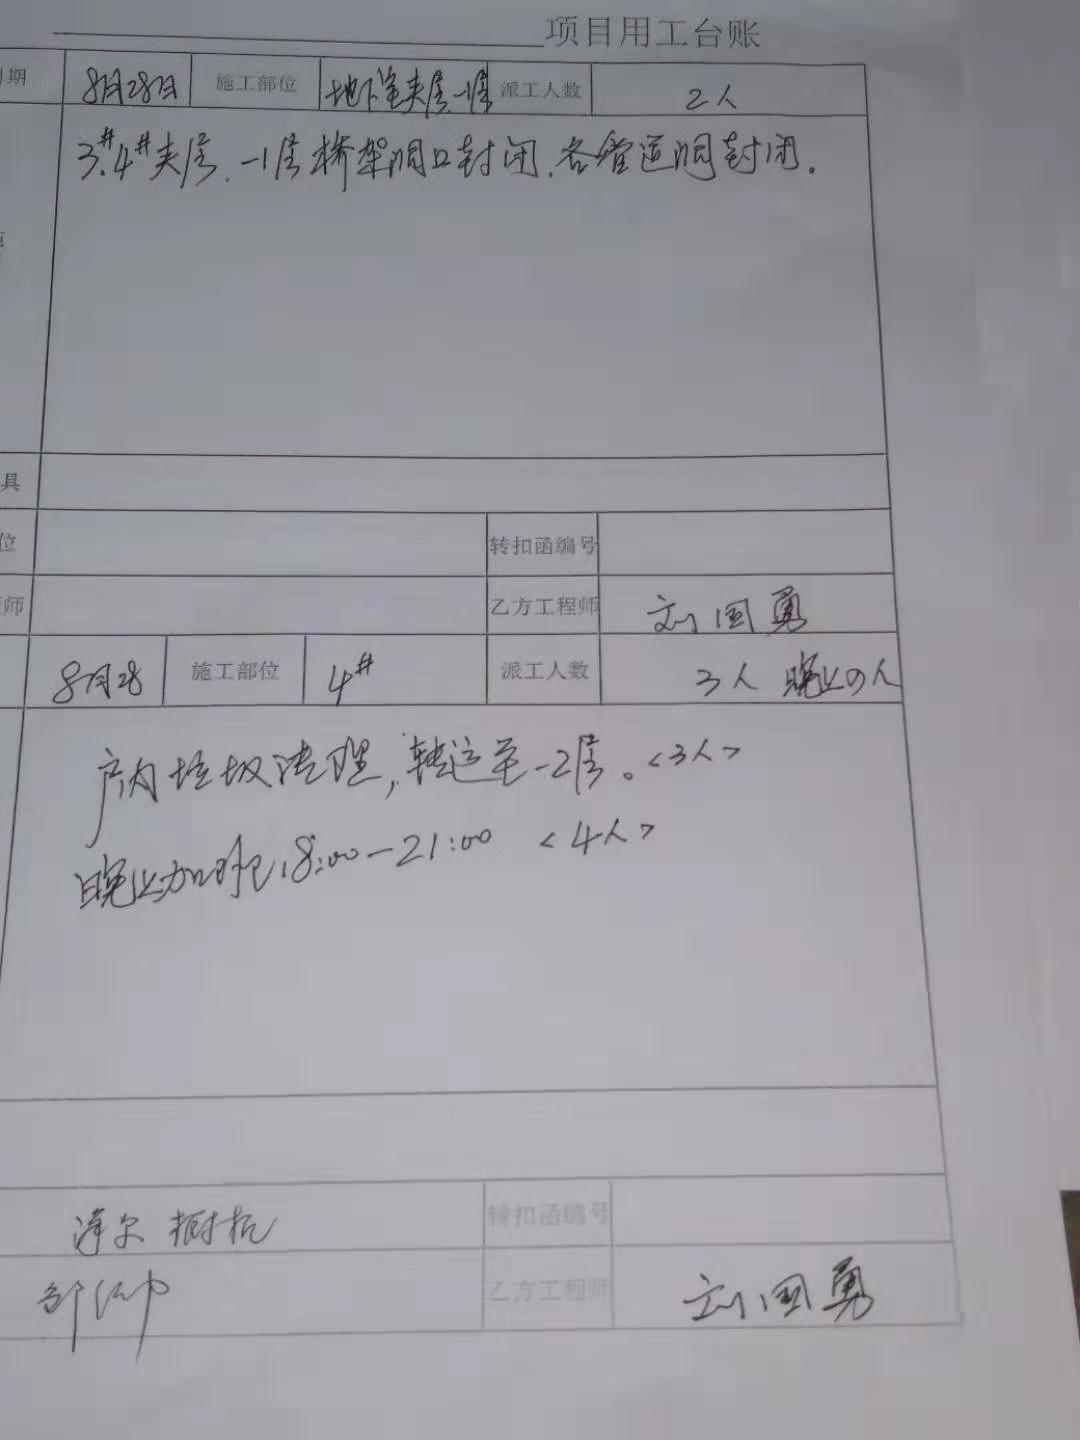 项目用工台账
期 8月28日 施工部位 地下室夹层.-1层 派工人数 2人
3#.4#夹层.-1层桥架洞口封闭.各管道洞封闭.
具
位 转扣函编号
师 乙方工程师 刘国勇
8月28 施工部位 4# 派工人数 3人 晚上4人
户内垃圾清理,转运至-2层。<3人>
晚上加班18:00-21:00 <4人>
转扣函编号
乙方工程师 刘国勇